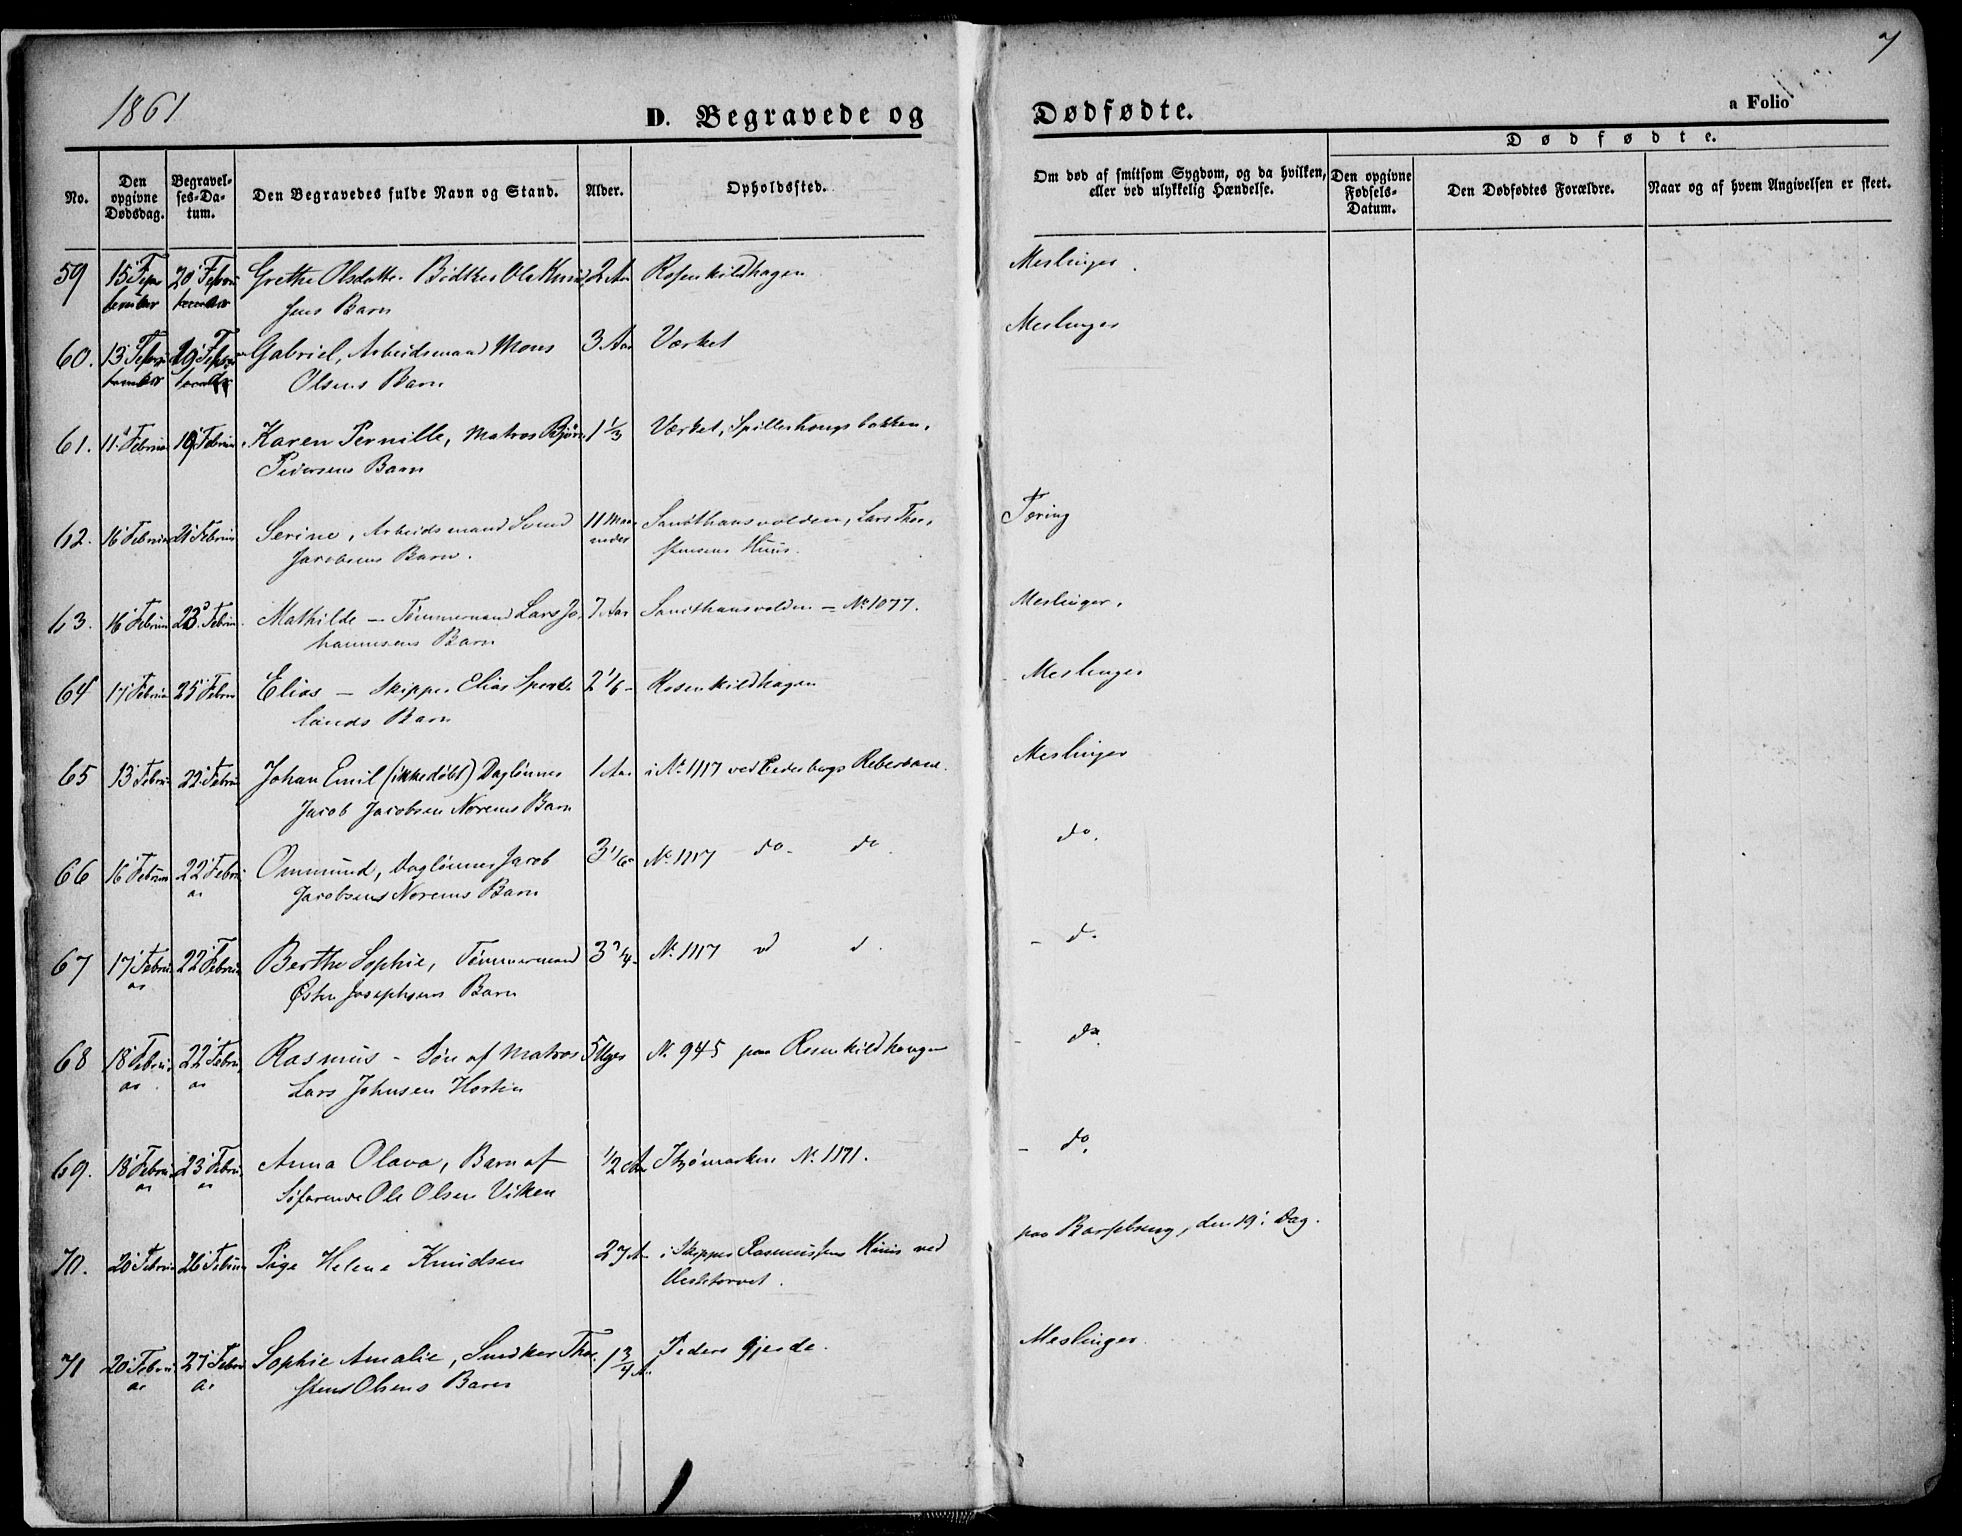 1861
7
D. Begravede og Dødfødte.
a Folio
No.
Den opgivne Dødsdag.
Begravelses-Datum.
Den Begravedes fulde Navn og Stand.
Alder.
Opholdssted.
Om død af smitsom Sygdom, og da hvilken,
eller ved ulykkelig Hændelse.
Dødfødte.
Den opgivne Fødsels-Datum.
Den Dødfødtes Forældre.
Naar og af hvem Angivelsen er skeet.
59 15 20 Grethe Olsdatter Bødker Ole Knud 2 Aar Rosenkildhagen Meslinger
sens Barn
60. 13 Gabriel, Arbeidsmand Mons 3 Aar Værket Meslinger
Olsens Barn
61. 11 Februar 19 Februar Karen Pernille, Matros Bjørn 1 1/3 Værket, Spillerhougsbakken.
Pedersens Barn
62. 16 Februar 21 Februar Serine, Arbeidsmand Svend 11 Maa Sancthansvolden, Lars Thor Tæring
Jacobsens Barn. neder stensens Huus.
63. 16 Februar 23 Februar Mathilde – Tømmermand Lars Jo 7 Aar Sancthansvolden – No 1077. Meslinger.
hannesens Barn
64 17 Februar 25 Februar Elias – Skipper Elias 2 1/6 – Rosenkildhagen Meslinger
lands Barn
65 13 Februar 22 Februar Johan Emil (ikke døbt) Daglønner 1 Aar i No 1117 ved Rederbergs Reberbane. Meslinger
Jacob Jacobsen Norems Barn
66 16 Februar 22 Febru Ommund, Daglønner Jacob 3 1/6 No 1117 do – do do.
ar Jacobsens Norems Barn
67 17 Febru 22 Febru Berthe Sophie, Tømmermand 3 3/4 – No 1117 d d. – d.
ar Østen Josephsens Barn
68 18 Febru 22 Febru Rasmus – Søn af Matros 5 Uger No 945 paa Rosenkildhagen – do.
ar ar Lars Johnsen
69. 18 Febru 23 Febru Anna Olava, Barn af 1/2 Aar No 1171. – do.
ar ar Søfarende Ole Olsen Viken
70. 20 Februar 26 Februar Pige Helene Knudsen 27 A i Skipper Rasmussens Huus ved paa Barselseng, den 19: Dag.
71 20 Febru 27 Febru Sophie Amalie, Snedker Thor 1 3/4 A. Peders gjerde. Meslinger
ar ar stens Olsens Barn